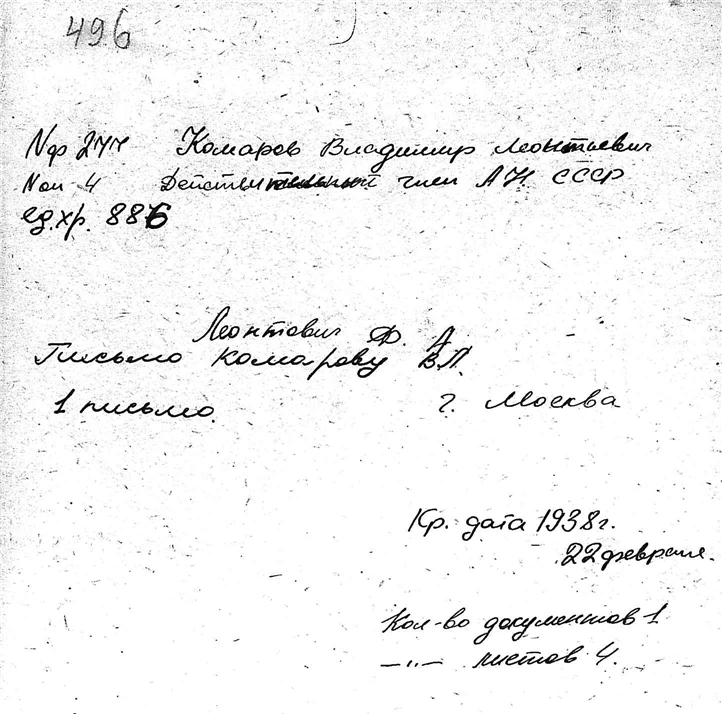 496
Nф 277 Комаров Владимир Леонтьевич
Nоп 4 Действительный член АН СССР
ед.хр. 886
Леонтович Ф. А.
Письмо Комарову В.Л.
1 письмо. г. Москва
Кр. дата 1938г.
22 февраля.
Кол-во документов 1
—"— листов 4.